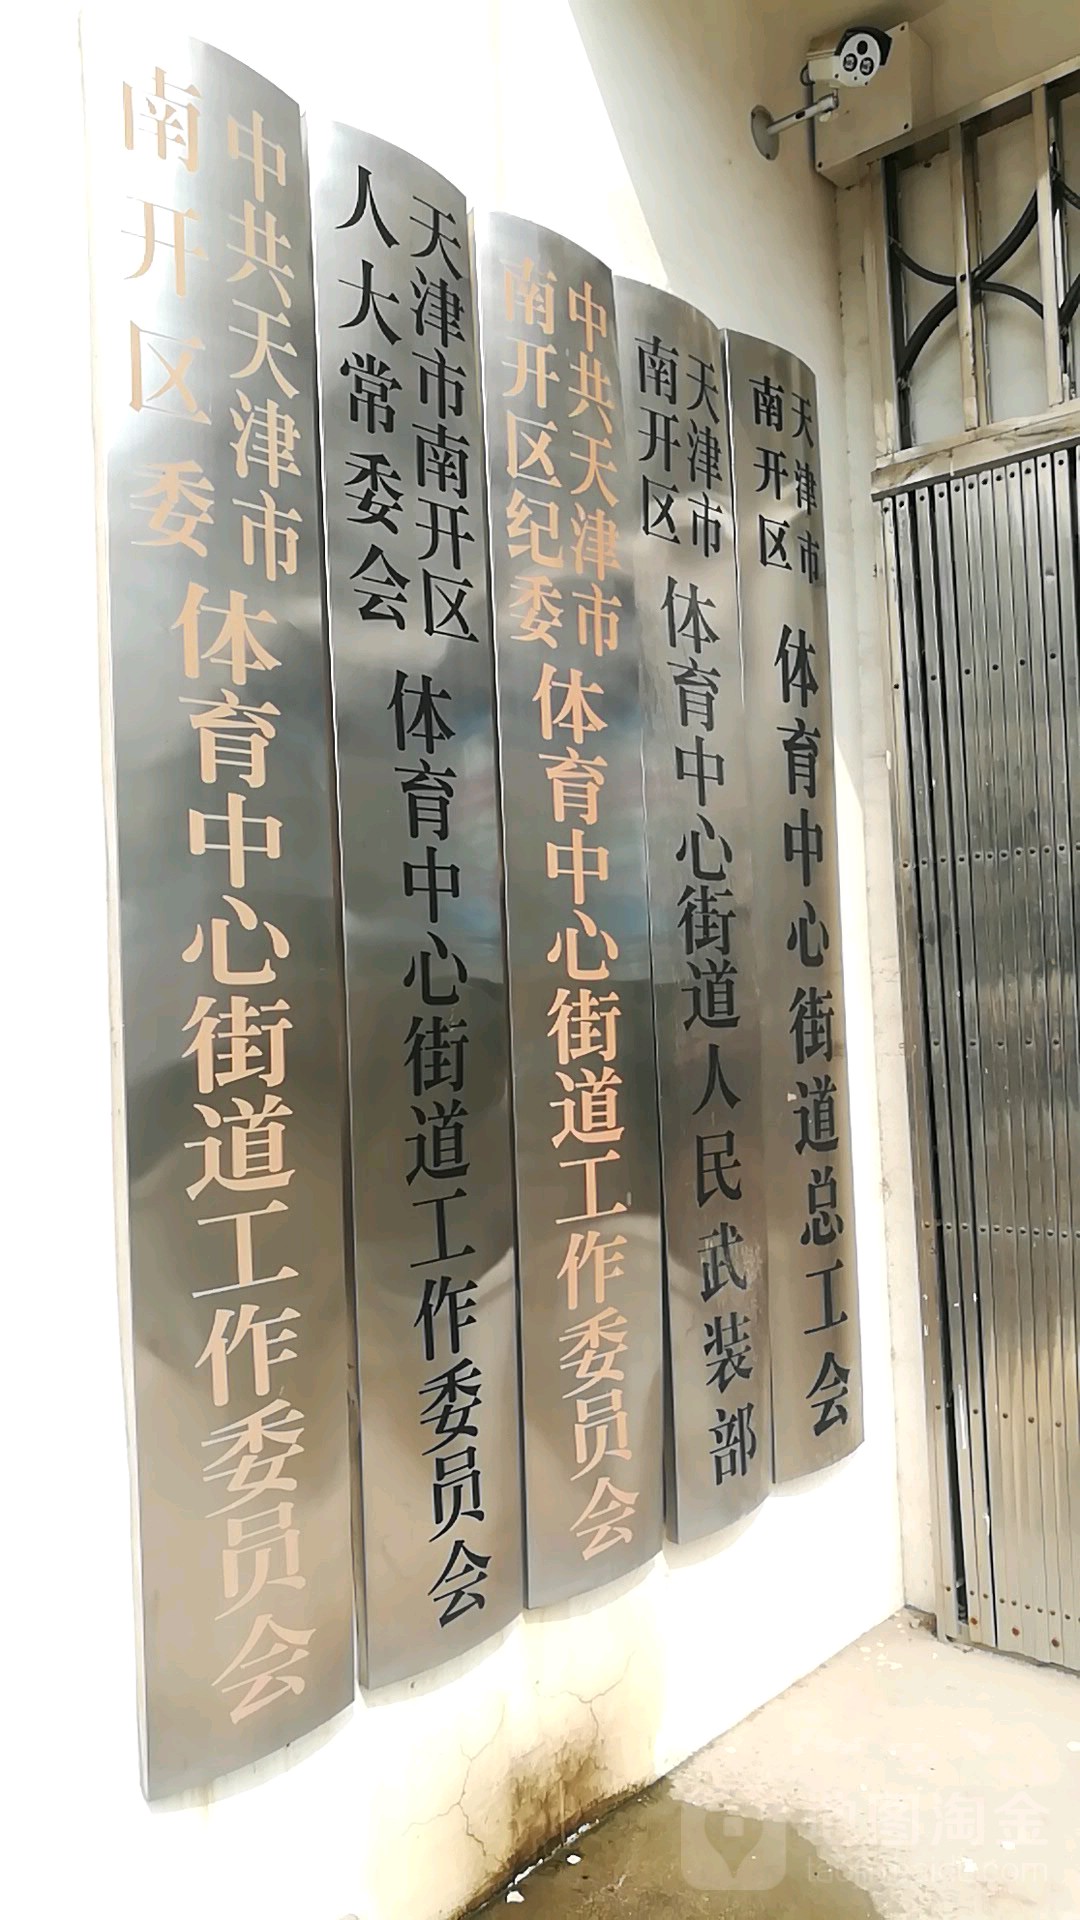 中共天津市
南开区委
体育中心街道工作委员会
天津市南开区
人大常委会
体育中心街道工作委员会
中共天津市
南开区纪委
体育中心街道工作委员会
天津市
南开区
体育中心街道人民武装部
天津市
南开区
体育中心街道总工会
地图淘金